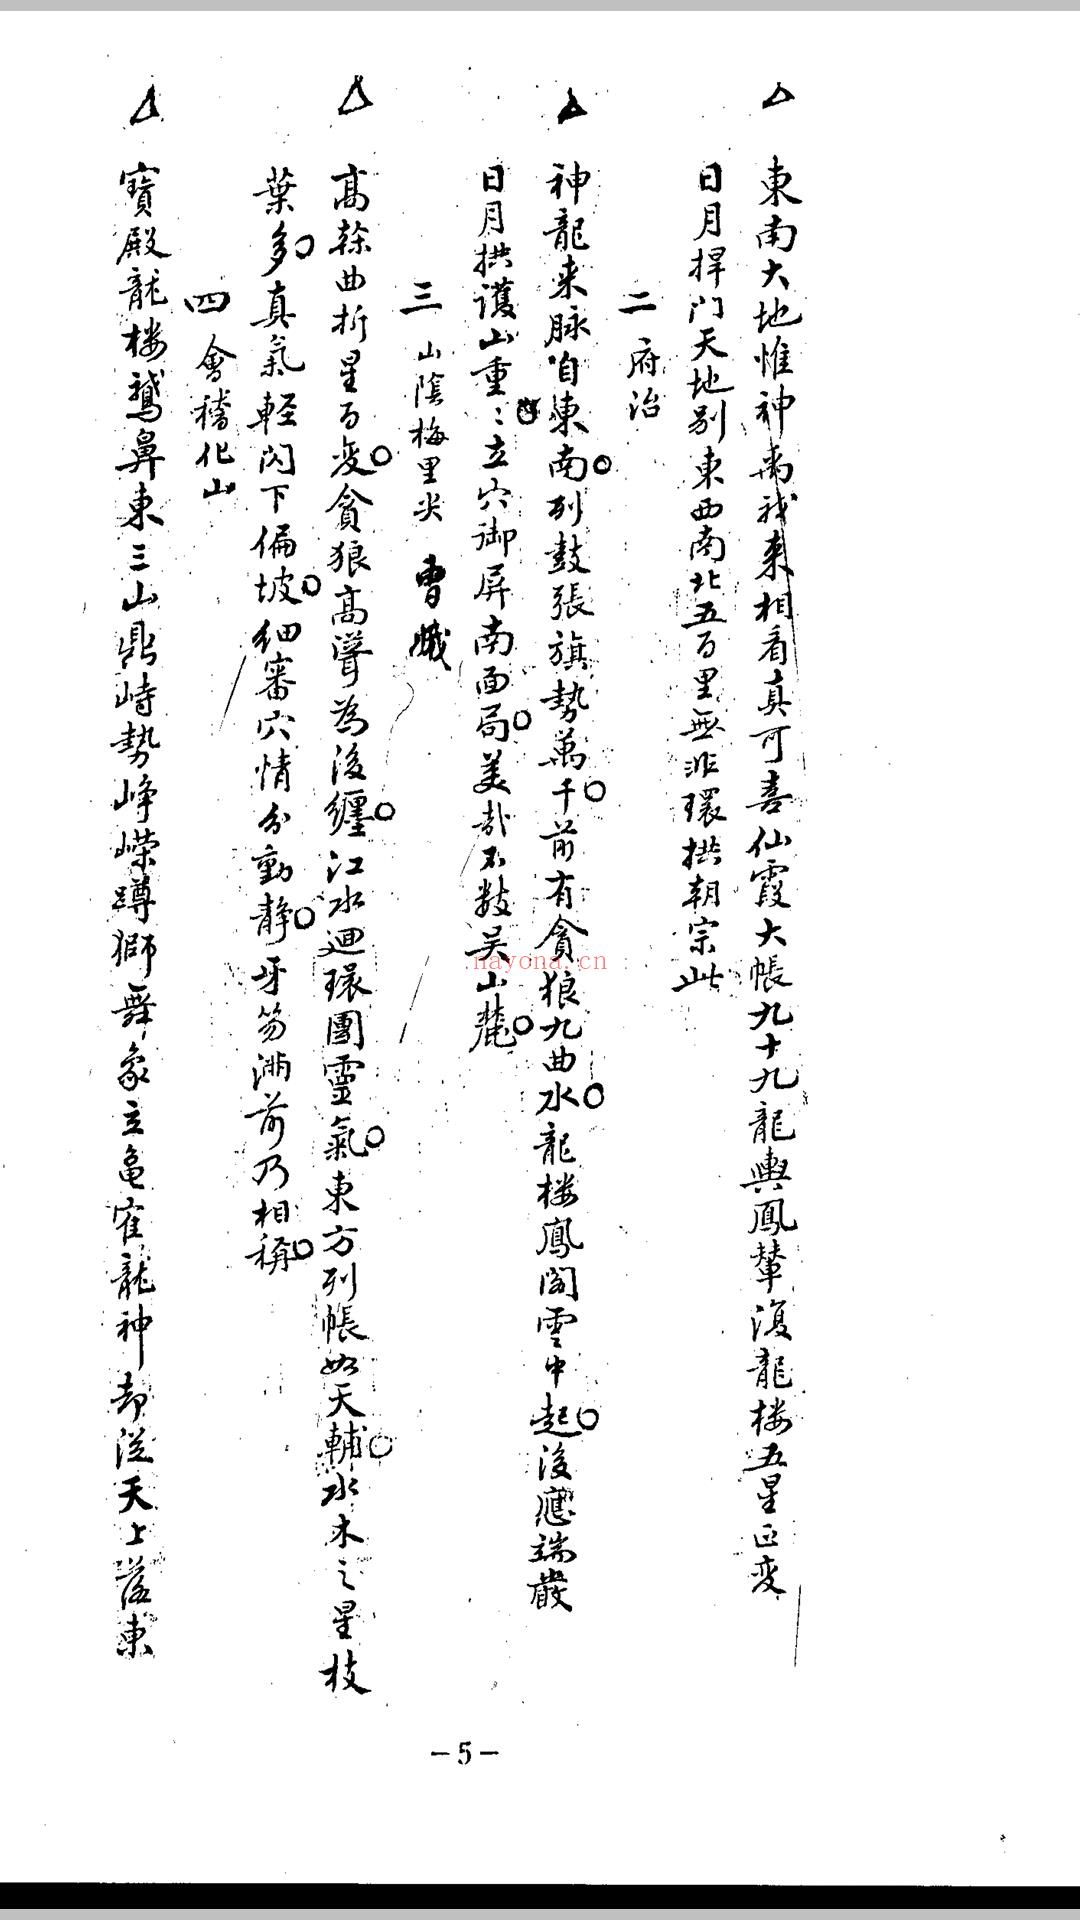 △ 東南大地惟神禹我來相看真可喜仙霞大帳九十九龍輿鳳輦後龍楼五星正变
日月捍门天地别東西南北五百里無非環拱朝宗此
二 府治
△ 神龍来脉自東南○列鼓張旗勢萬千○前有貪狼九曲水○龍楼鳳閣雲中起○後應端嚴
日月拱護山重〻立穴御屏南面局○美哉不数吴山麓○
三 山陰梅里尖 曹
△ 高幹曲折星百变○貪狼高聳為後纏○江水迴環團靈氣○東方列帳如天輔○水木之星枝
葉多○真氣輕闪下偏坡○细審穴情分動静○牙笏滿前乃相稱○
四 會稽化山
△ 寶殿龍楼鵞鼻東三山鼎峙勢峥嶸蹲獅舞象立龜龍神却從天上落東
nayona.cn
-5-